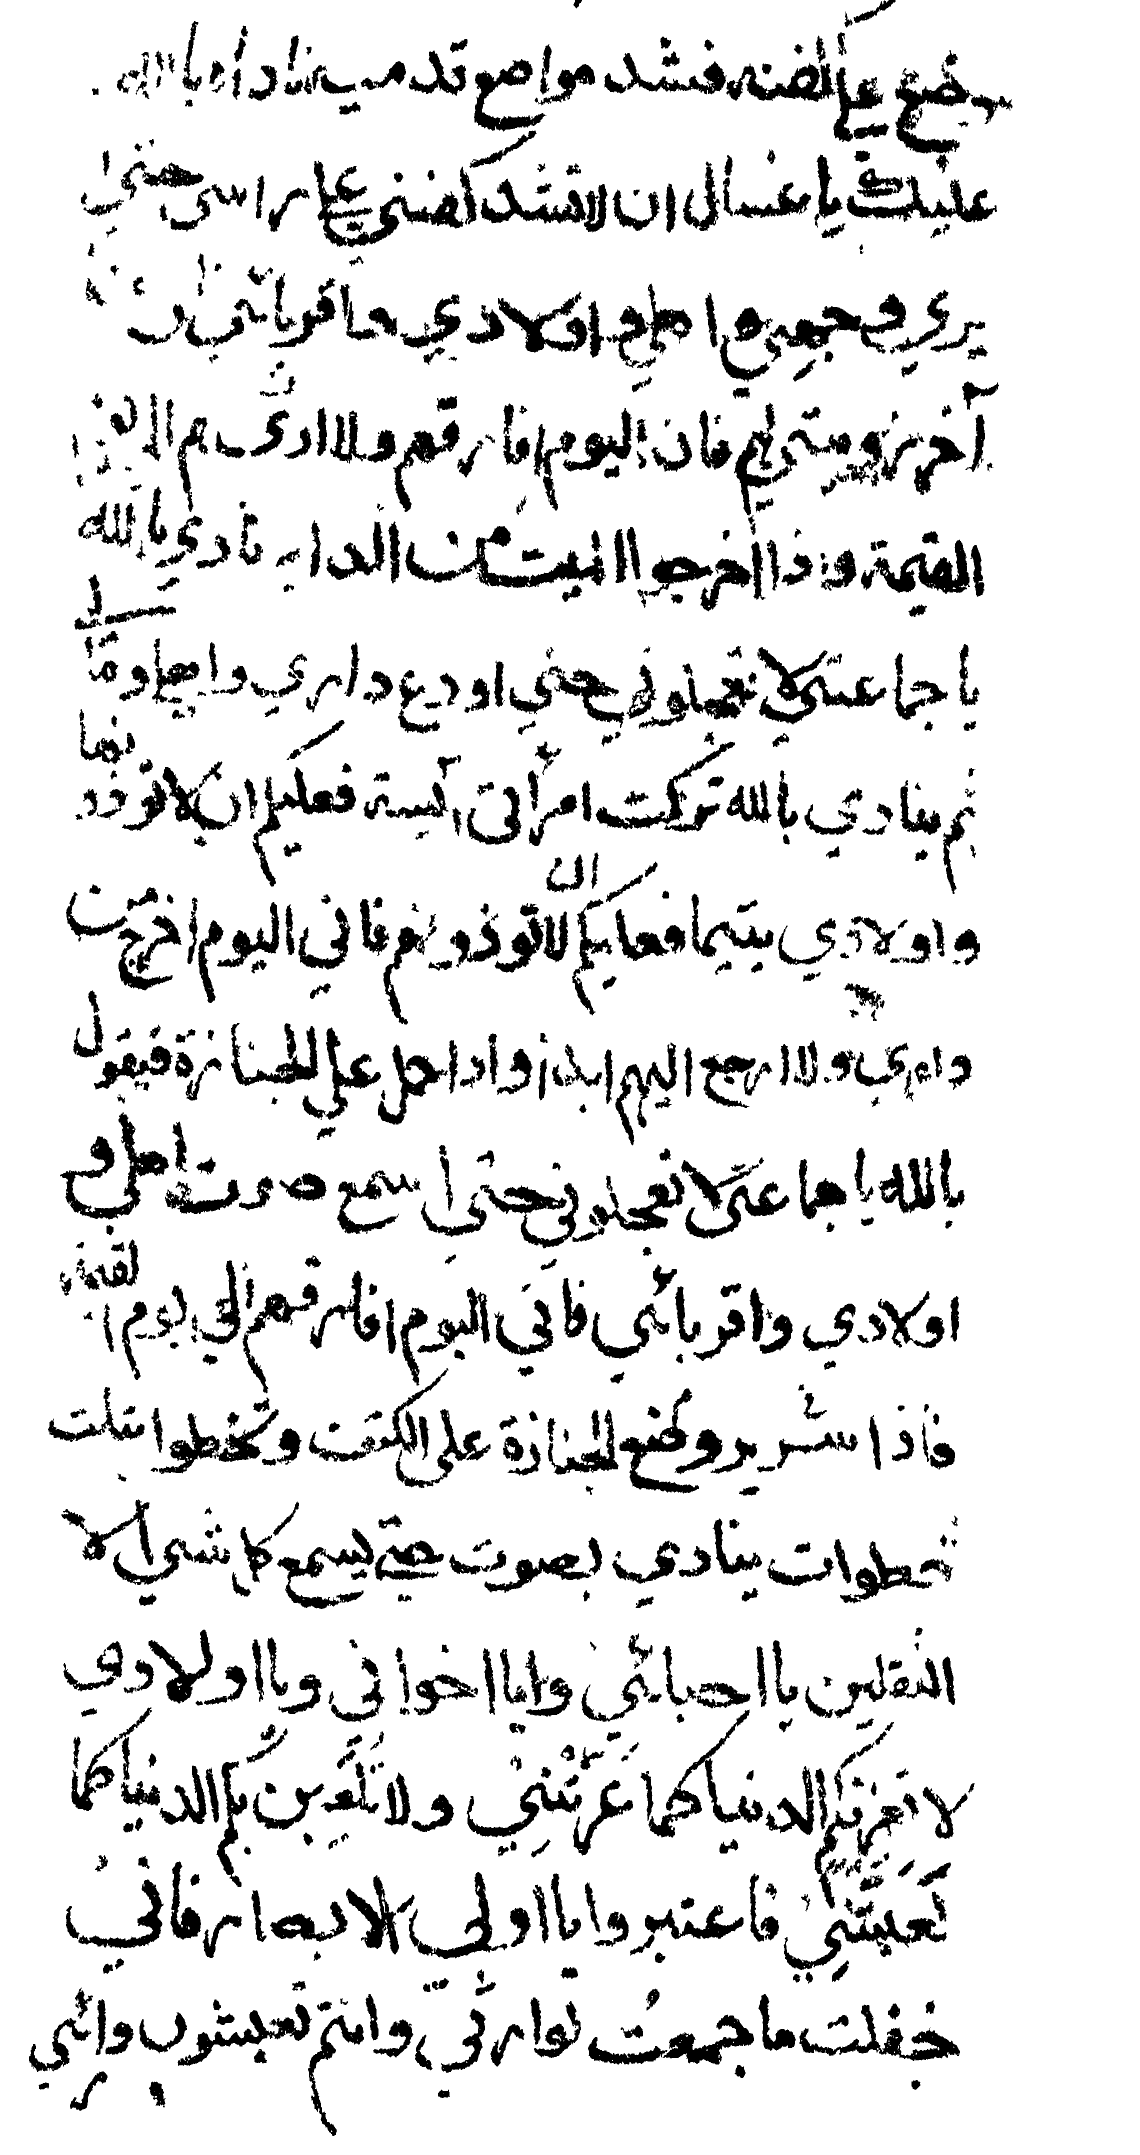 وضع على الضنه فشد مواضع قدميه ناداه بالله
عليك يا غسال ان لا تشد كفني على راسي حتى
يرى وجهي واهلي واولادي واقربائي
آخر زومتي لهم فان اليوم افارقهم ولا ادري هم الى يوم
القيمة واذا اخرجوا الميت من الدار نادي بالله
يا جماعتي لا تعجلوني حتي اودع داري واهلي وما لي
ثم ينادي بالله تركت امرأتي آيسة فعليكم ان لا توذونها
واولادي يتيما فعليكم ان لا توذونهم فاني اليوم اخرج من
داري ولا ارجع اليهم ابدا واذا حل علي الجنازة فيقول
بالله يا جماعتي لا تعجلوني حتي اسمع صوت اهلي و
اولادي واقربائي فاني اليوم افارقهم الي يوم القيمة
فاذا سرير وضع الجنازة على الكتف وتخطوا بثلت
خطوات ينادي بصوت حتي يسمع كل شي الا
الثقلين يا احبائي وايا اخواني ويا اولادي
لا تغرنكم الدنيا كما غرّتنِي ولا تلعبن بكم الدنيا كما
لَعِبَتْنِي فاعتبروا يا اولي الابصار فاني
خفلت ما جمعت لوارثي وانتم تعيشون وانني